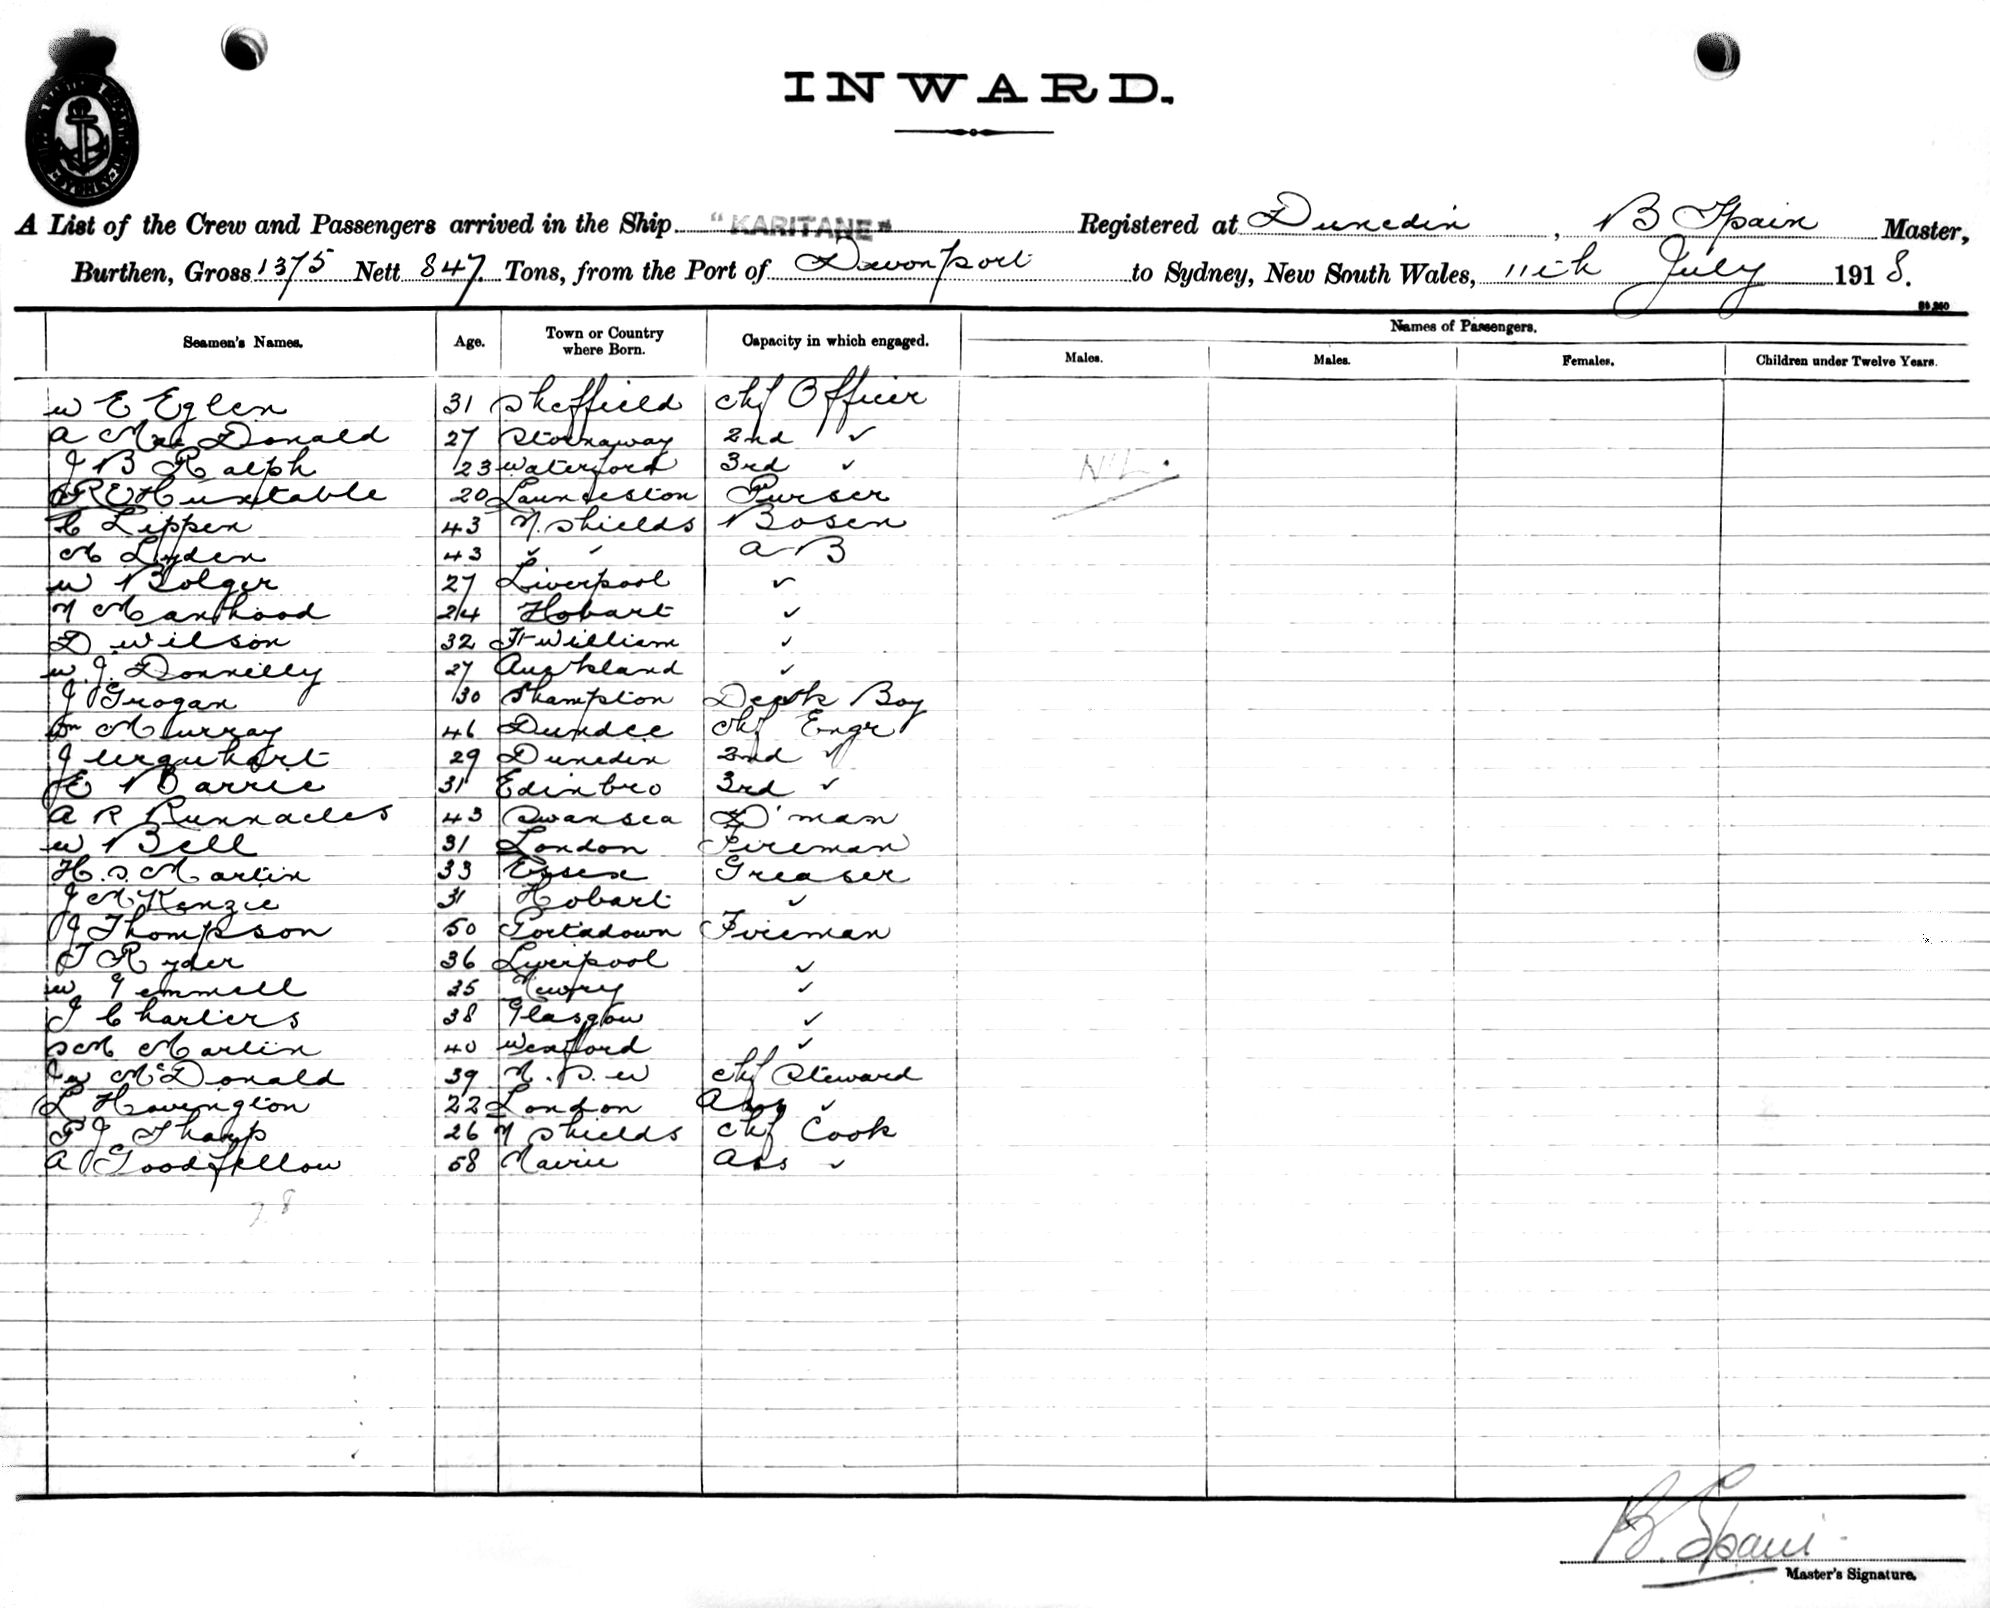 INWARD.
A List of the Crew and Passengers arrived in the Ship "KARITANE" Registered at Dunedin, B Spain Master,
Burthen, Gross 1375 Nett 847 Tons, from the Port of Devonport to Sydney, New South Wales, 11th July 1918.
Names of Passengers.
Seamen's Names. Age. Town or Country where Born. Capacity in which engaged. Males. Males. Females. Children under Twelve Years.
W E Eglen 31 Sheffield Chf Officer
A Mac Donald 27 Stornaway 2nd ✓
J B Ralph 23 Waterford 3rd ✓ NIL.
R E Huxtable 20 Launceston Purser
C Lippen 43 N. Shields Bosen
M Lyden 43 ✓ ✓ A B
W Bolger 27 Liverpool ✓
N Manhood 24 Hobart ✓
D Wilson 32 Ft William ✓
W. J. Donnelly 27 Auckland ✓
J Grogan 30 Shampton Deck Boy
Wm Murray 46 Dundee Chf Engr
J Urquhart 29 Dunedin 2nd ✓
E Barrie 31 Edinbro 3rd ✓
A R Runnacles 43 Swansea D'man
W Bell 31 London Fireman
H. S. Martin 33 Essex Greaser
J McKenzie 31 Hobart ✓
J Thompson 50 Portadown Fireman
T Ryder 36 Liverpool ✓
W Gemmell 35 Newry ✓
J Charters 38 Glasgow ✓
S M Martin 40 Wexford ✓
J W McDonald 39 N. S. W Chf Steward
L Havington 22 London Ass ✓
P J Tharp 26 N Shields Chf Cook
A Goodfellow 58 Nairn Ass ✓
B. Spain
Master's Signature.